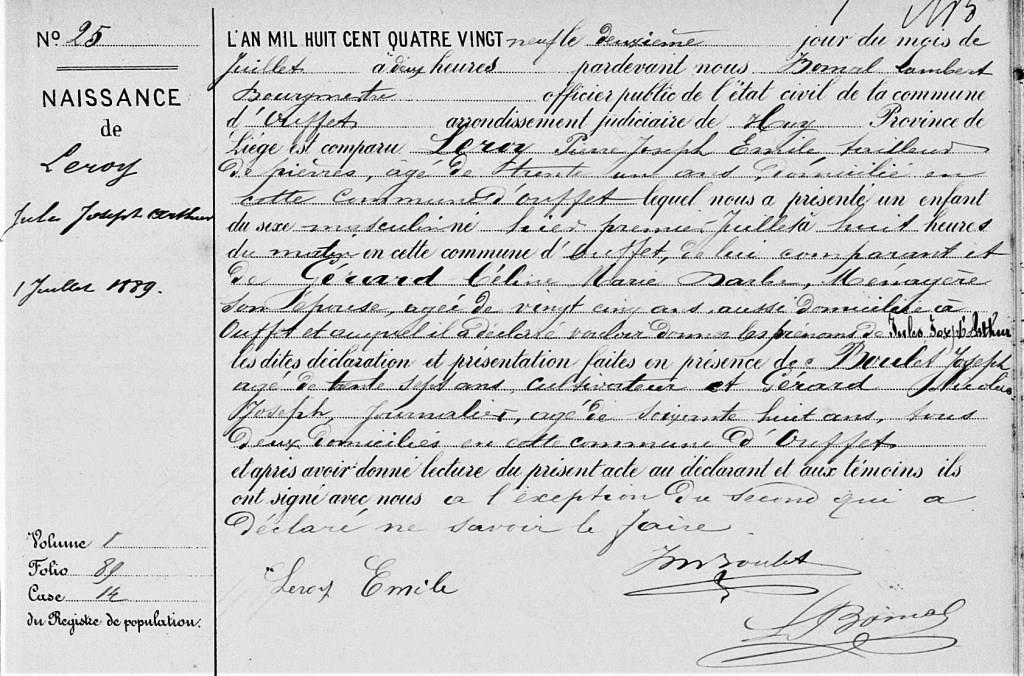 N° 25
NAISSANCE
de
Leroy
Jules Joseph Arthur
1 Juillet 1889.
Volume 1
Folio 89
Case 14
du Registre de population.
L'AN MIL HUIT CENT QUATRE VINGT neuf le deuxième jour du mois de
Juillet à deux heures pardevant nous Bomal Lambert
Bourgmestre officier public de l'état civil de la commune
d'Ouffet arrondissement judiciaire de Huy Province de
Liège est comparu Leroy Pierre Joseph Emile tailleur
de pierres, agé de trente un ans, domicilié en
cette commune d'Ouffet lequel nous a présenté un enfant
du sexe masculin né hier premier Juillet à huit heures
du matin en cette commune d'Ouffet, de lui comparant et
de Gérard Céline Marie Barbe, Ménagère
son épouse, agée de vingt cinq ans, aussi domiciliée à
Ouffet et auquel il a déclaré vouloir donner les prénoms de Jules Joseph Arthur
les dites déclaration et présentation faites en présence de Boulet Joseph
agé de trente sept ans, cultivateur et Gérard
Joseph journalier, agé de soixante huit ans, tous
deux domiciliés en cette commune d'Ouffet
et après avoir donné lecture du présent acte au déclarant et aux témoins ils
ont signé avec nous à l'éxception du second qui a
déclaré ne savoir le faire
Leroy Emile
Boulet
L Bomal